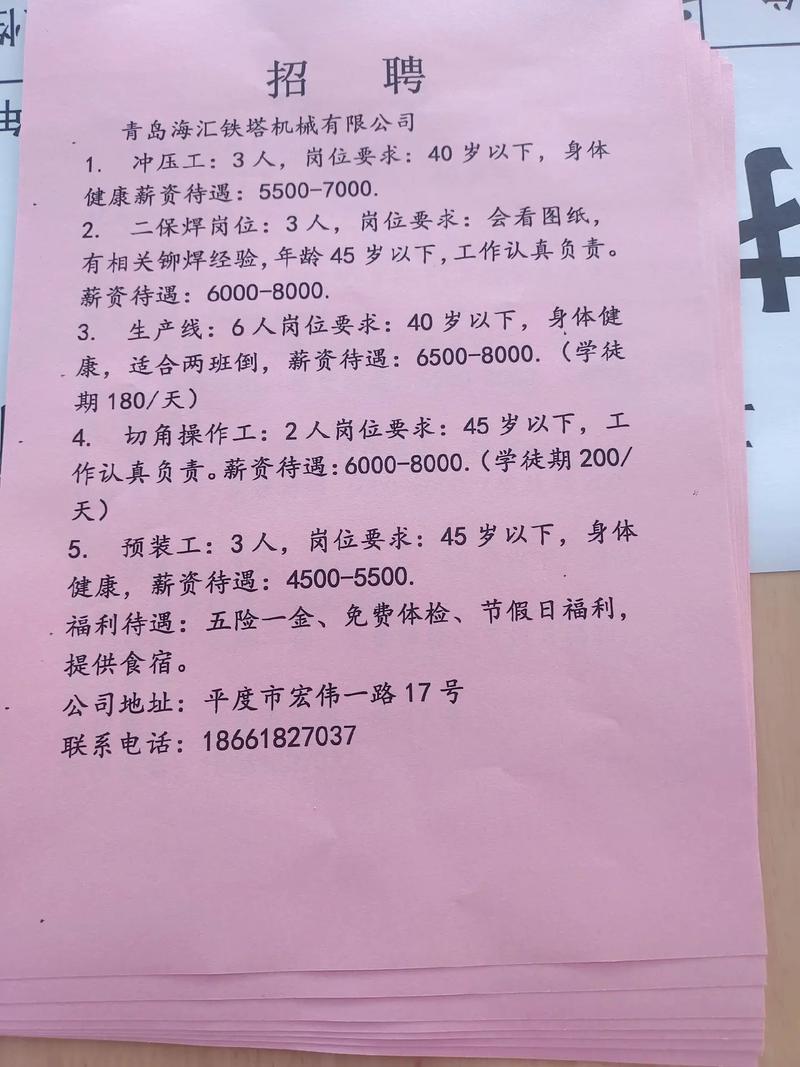 招 聘
青岛海汇铁塔机械有限公司
1. 冲压工：3人，岗位要求：40岁以下，身体
健康薪资待遇：5500-7000.
2. 二保焊岗位：3人，岗位要求：会看图纸，
有相关铆焊经验,年龄45岁以下,工作认真负责。
薪资待遇：6000-8000.
3. 生产线：6人岗位要求：40岁以下，身体健
康，适合两班倒，薪资待遇：6500-8000.（学徒
期180/天）
4. 切角操作工：2人岗位要求：45岁以下，工
作认真负责。薪资待遇:6000-8000.(学徒期200/
天）
5. 预装工：3人，岗位要求：45岁以下，身体
健康，薪资待遇：4500-5500.
福利待遇：五险一金、免费体检、节假日福利，
提供食宿。
公司地址：平度市宏伟一路17号
联系电话：18661827037